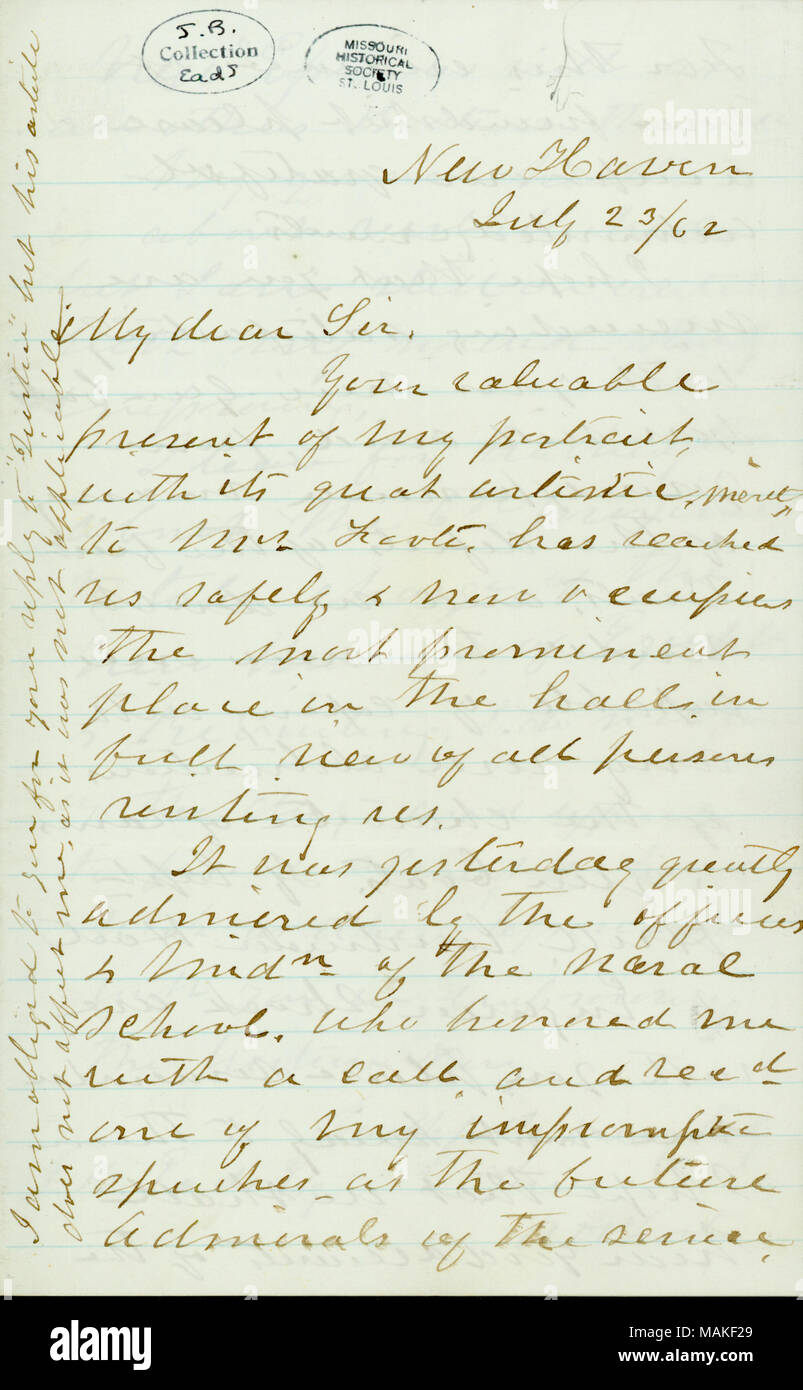 J. B.
Collection
Eads
MISSOURI
HISTORICAL
SOCIETY
ST. LOUIS
New Haven
July 23/62
My dear Sir.
Your valuable
present of my portrait,
with its great artistic merit,
to Mrs. Foote. has reached
us safely & now occupies
the most prominent
place in the hall, in
full view of all persons
visiting us.
It was yesterday greatly
admired by the officers
& Midn of the Naval
School. who honored me
with a call and recd
one of my impromptu
speeches - as the future
Admirals of the service,
I am obliged to you for your reply to "Justice" but his article
does not affect me, as it was not applicable.
alamy
Image ID: MAKF29
www.alamy.com